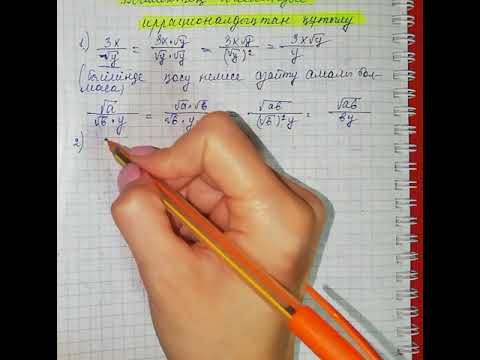 иррационалдықтан құтылу
1) 3x/√y = 3x·√y/√y·√y = 3x√y/(√y)² = 3x√y/y
(бөлімінде қосу немесе азайту амалы бол-
маса)
√a/√b·y = √a·√b/√b·y = √ab/(√b)²y = √ab/by
2)